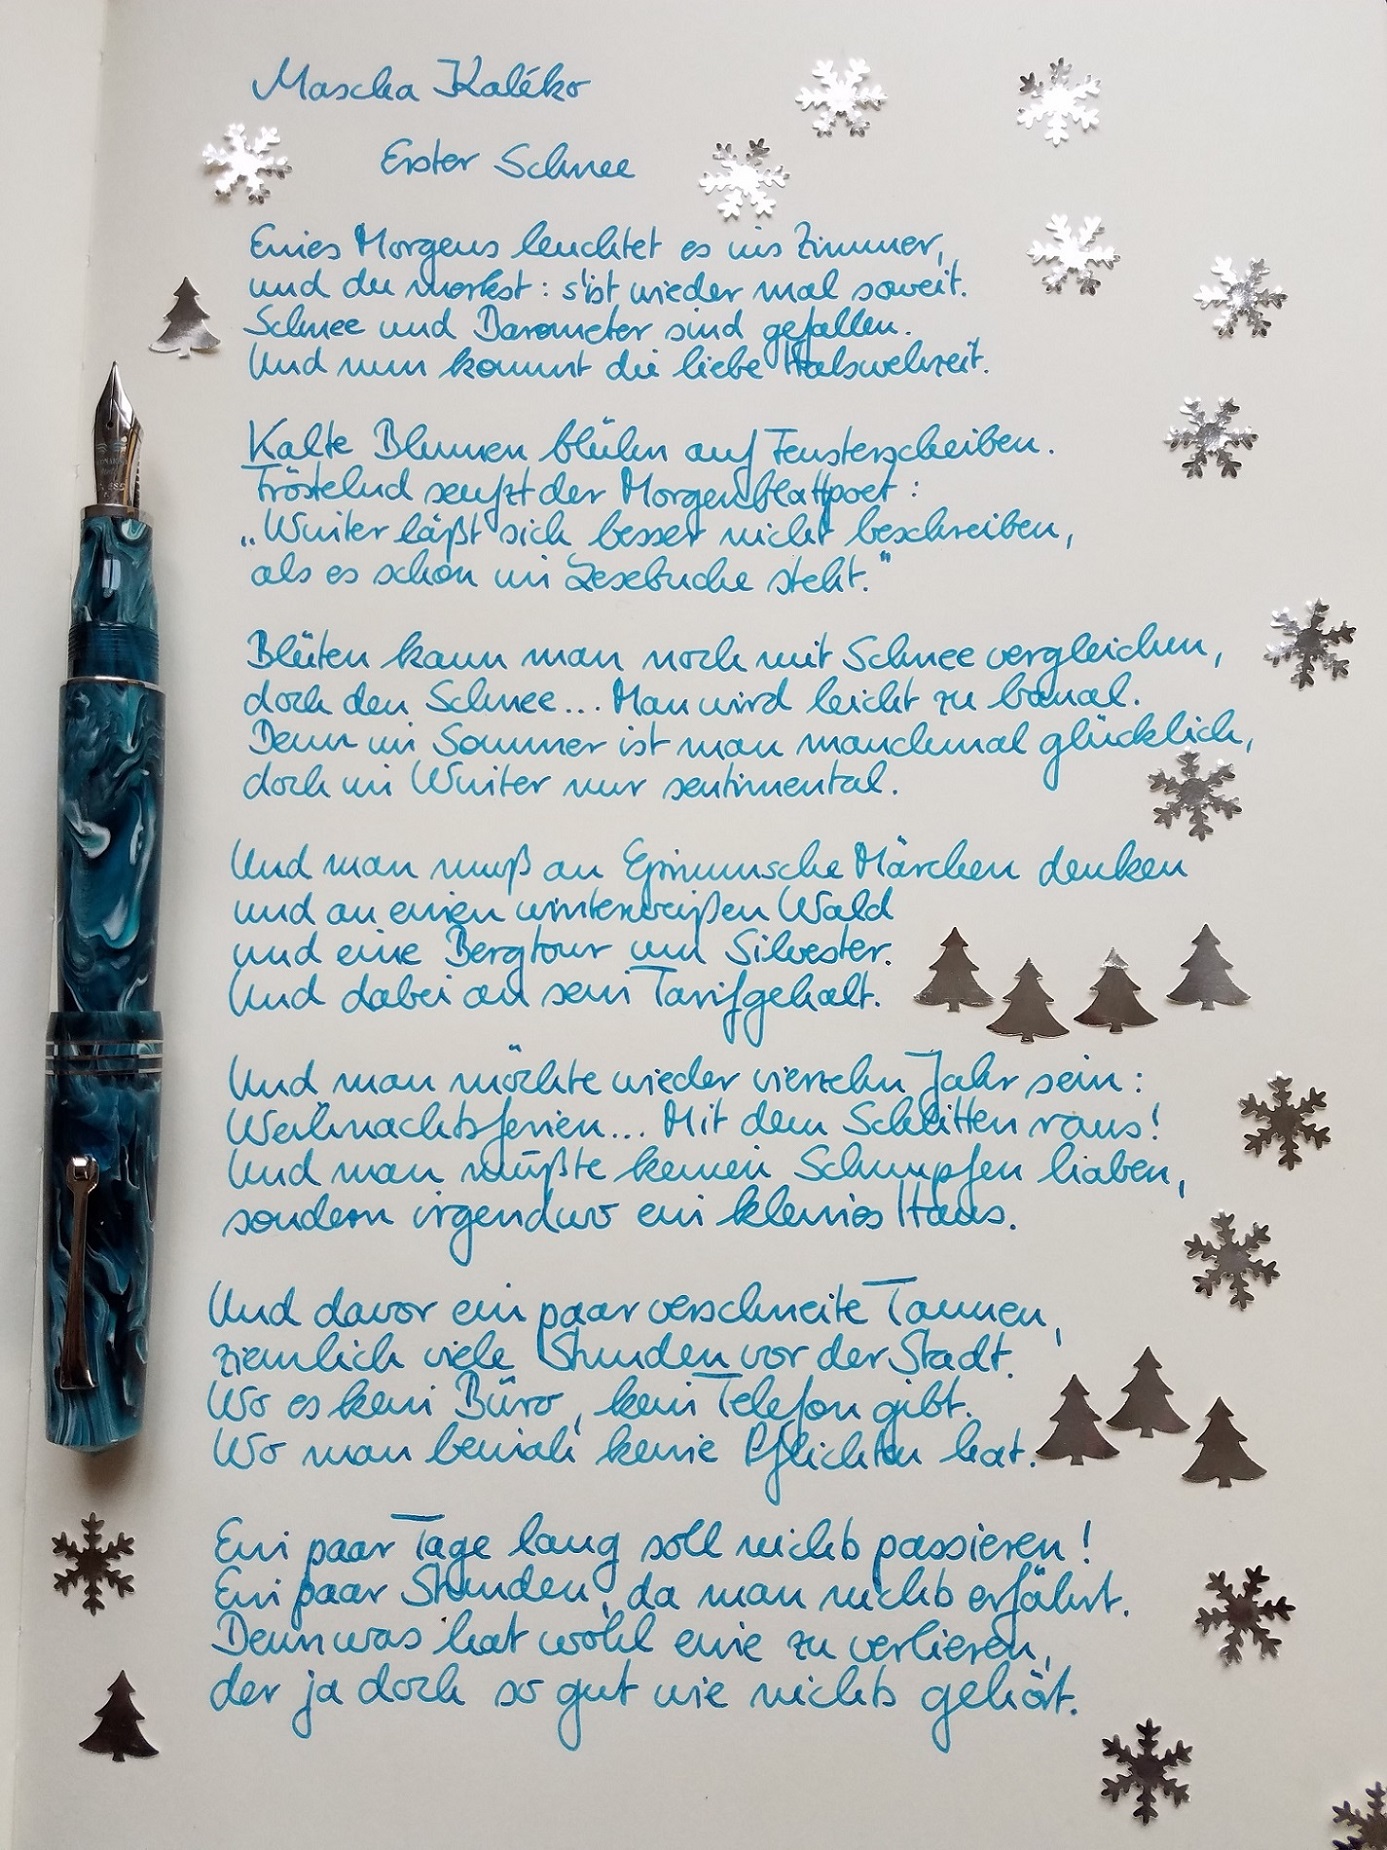 Mascha Kaléko
Erster Schnee
Eines Morgens leuchtet es ins Zimmer,
und du merkst: s'ist wieder mal soweit.
Schnee und Barometer sind gefallen.
Und nun kommt die liebe Halswehzeit.
Kalte Blumen blühn auf Fensterscheiben.
Fröstelnd seufzt der Morgenblattpoet:
„Winter läßt sich besser nicht beschreiben,
als es schon im Lesebuche steht."
Blüten kann man noch mit Schnee vergleichen,
doch den Schnee... Man wird leicht zu banal.
Denn im Sommer ist man manchmal glücklich,
doch im Winter nur sentimental.
Und man muß an Grimmsche Märchen denken
und an einen winterweißen Wald
und eine Bergtour um Silvester.
Und dabei an sein Tarifgehalt.
Und man möchte wieder vierzehn Jahr sein:
Weihnachtsferien... Mit dem Schlitten raus!
Und man müßte keinen Schnupfen haben,
sondern irgendwo ein kleines Haus.
Und davor ein paar verschneite Tannen,
ziemlich viele Stunden vor der Stadt.
Wo es kein Büro, kein Telefon gibt.
Wo man beinah keine Pflichten hat.
Ein paar Tage lang soll nichts passieren!
Ein paar Stunden, da man nichts erfährt.
Denn was hat wohl eine zu verlieren,
der ja doch so gut wie nichts gehört.